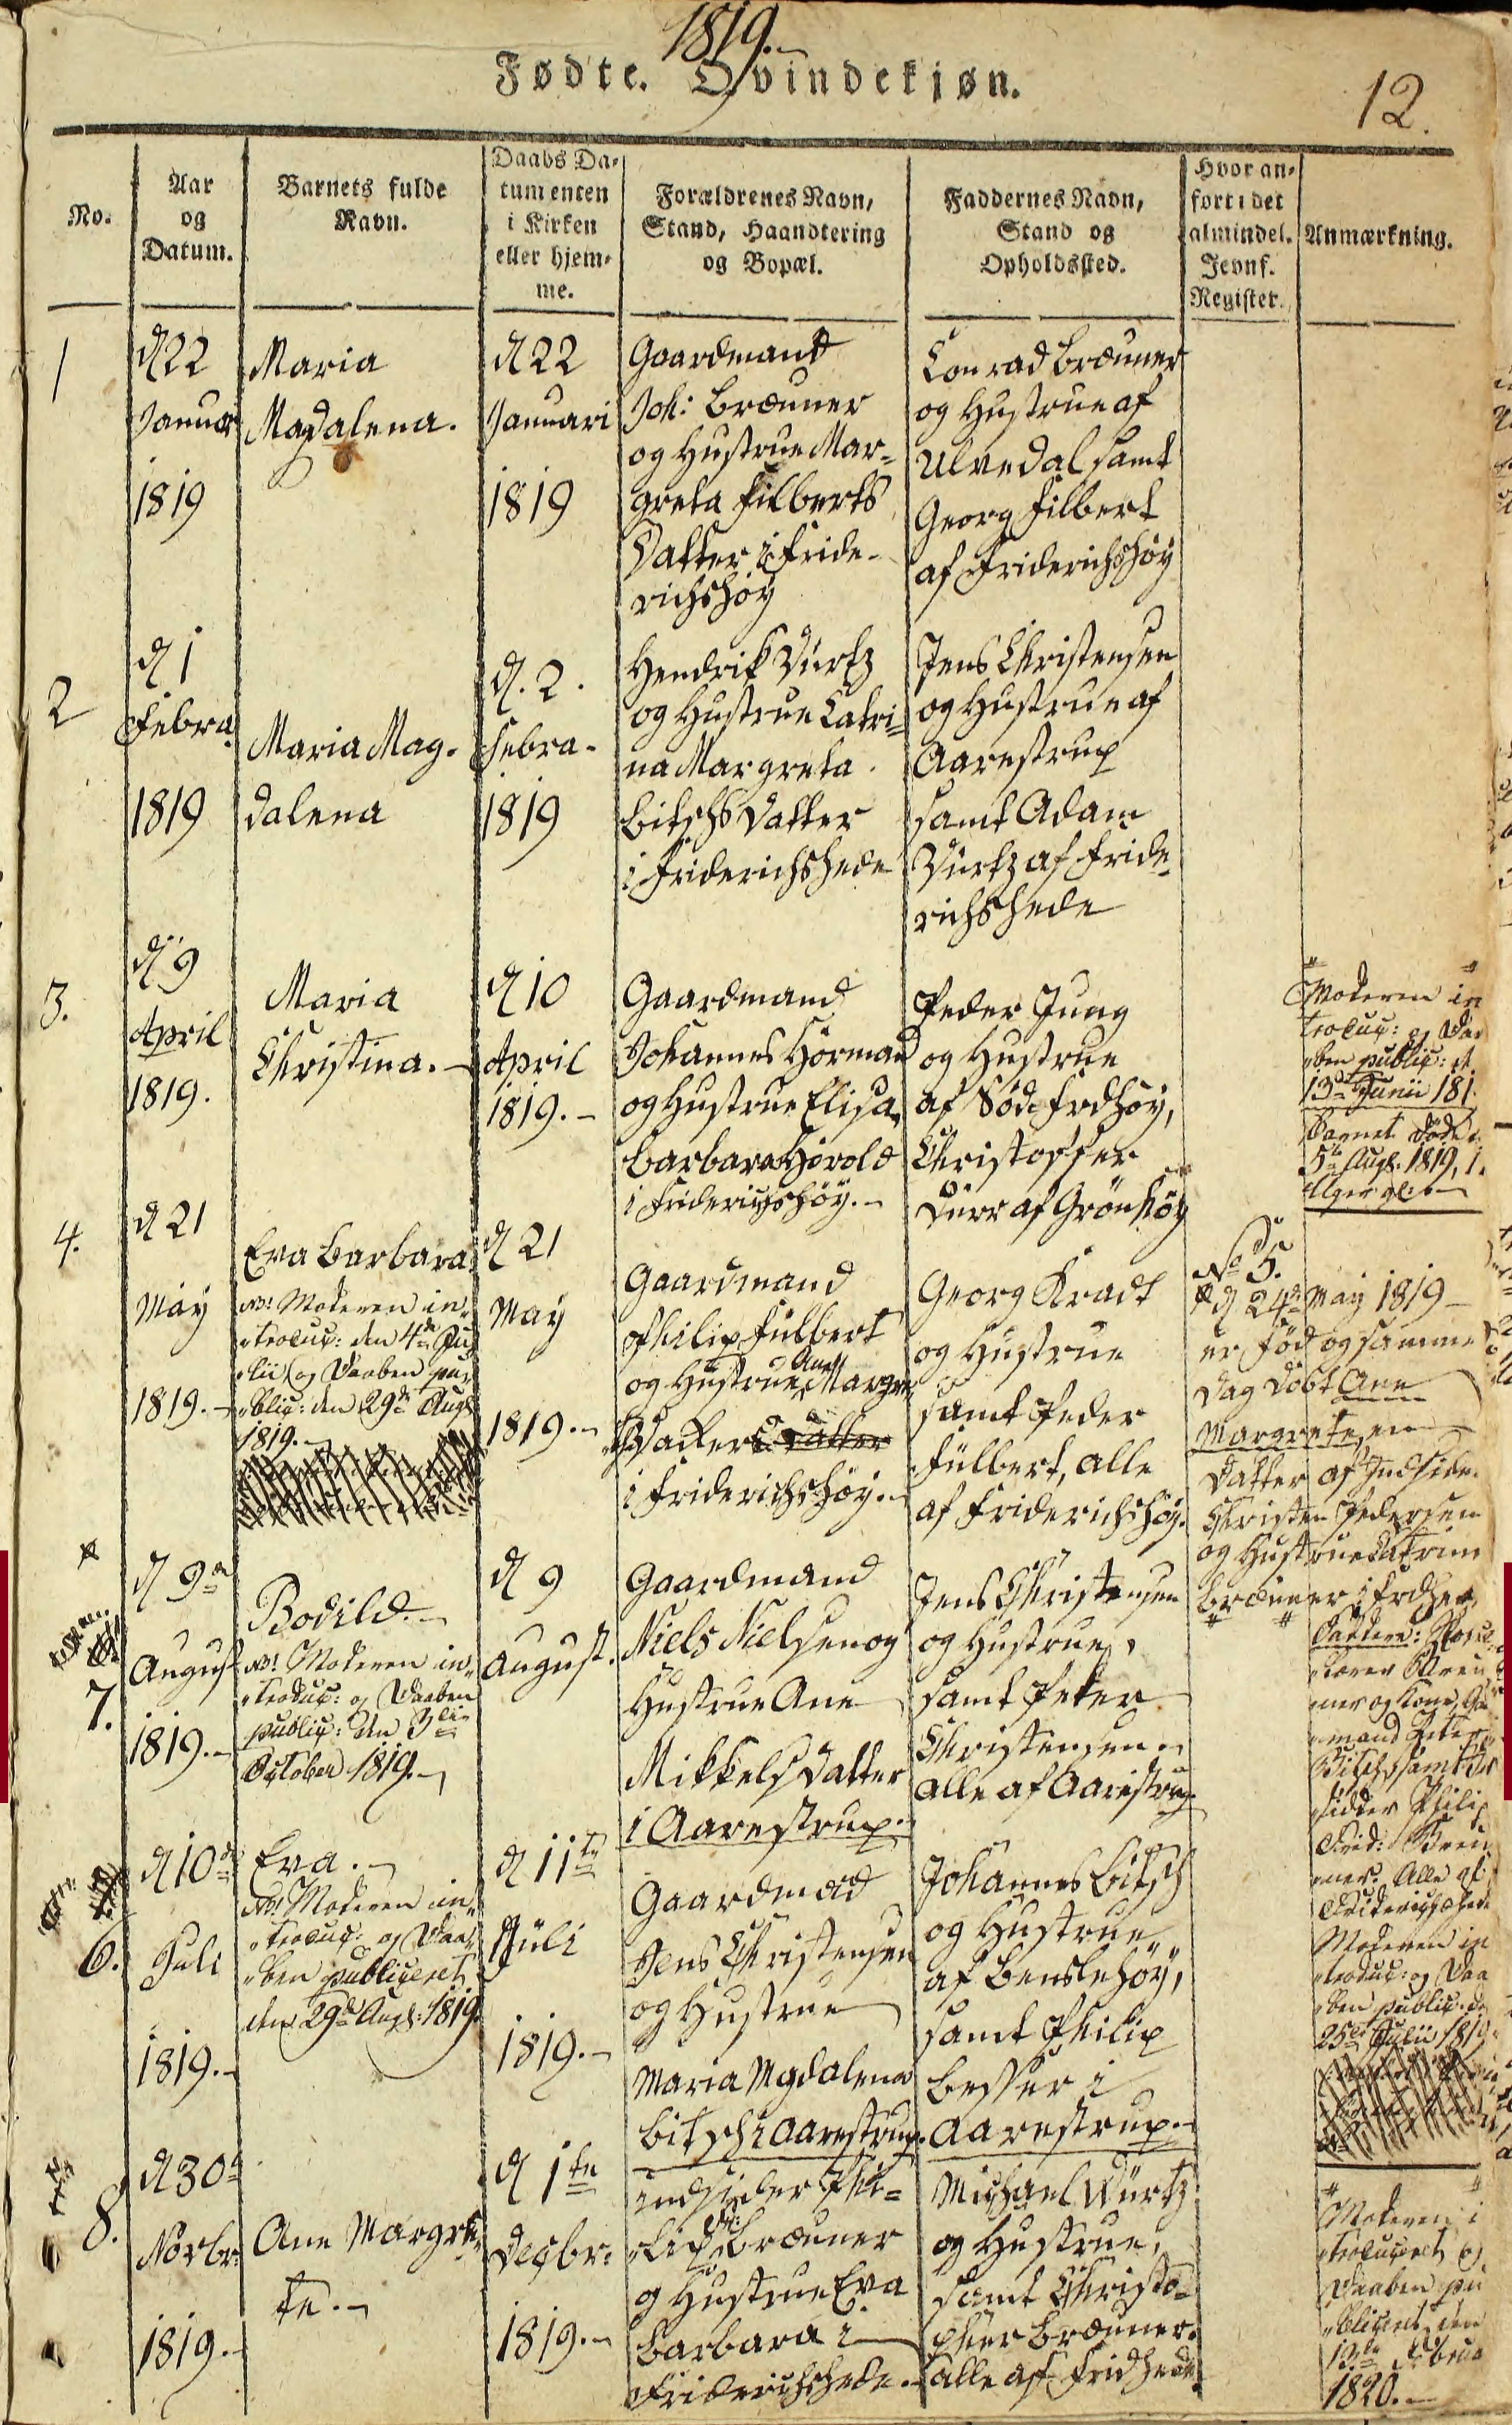 1819.
Fødte. Qvindekjøn.
12.
No.
Aar
og
Datum.
Barnets fulde
Navn.
Daabs Da-
tum enten
i Kirken
eller hjem-
me.
Forældrenes Navn,
Stand, Haandtering
og Bopæl.
Faddernes Navn,
Stand og
Opholdssted.
Hvor an-
fort i det
almindel.
Jevnf.
Register.
Anmærkning.
1
d 22
Januar
1819
Maria
Magdalena.
d 22
Januari
1819
Gaardmand
Joh: Bræuner
og Hustrue Mar-
greta Filberts
Datter i Fride-
richshöy
Conrad Bræuner
og Hustrue af
Ulvedal samt
Georg Filbert
af Friderichshöy
2
d 1
Febra
1819
Maria Mag-
dalena
d. 2.
Febra-
1819
Hendrik Würtz
og Hustrue Catri-
na Margreta
Bitschs Datter
i Friderichshede
Jens Christensen
og Hustrue af
Aarestrup
samt Adam
Würtz af Fride
richshede
3.
d 9
April
1819.
Maria
Christina.-
d 10
April
1819.-
Gaardmand
Johannes Hörmand
og Hustrue Elisa
Barbara Harold
i Friderichshöy.-
Peder Jung
og Hustrue
af Söd. Frdhöy,
Christoffer
Dürr af Grönhöy
Moderen in
troduc: og Daa
ben public: d.
13de Junii 181
Barnet döde d.
5te Aug. 1819, 1.
4.
d 21
May
1819.-
Eva Barbara
NB! Moderen in-
troduc: den 4de Ju-
lii (og Daaben pu-
blic: den 29de Aug.
1819.-
d 21
May
1819.-
Gaardmand
Philip Fülbert
og Hustrue Ane Margre
Vacker Datter
i Friderichshöy.-
Georg Kradt
og Hustrue
samt Peder
Fülbert, alle
af Friderichshöy.
No 5.
d 24de May 1819
er föd og samme
Dag döbt Ane
Margrete, en
Datter af Indsider
Christen Pedersen
og Hustrue Catrine
Bræuner i Frdhede
7.
d 9de
August
1819.-
Bodild.-
NB! Moderen in-
troduc: og Daaben
public: den 3die
October 1819.-
d 9
August.
Gaardmand
Niels Nielsen og
Hustrue Ane
Mikkels Datter
i Aarestrup.-
Jens Christensen
og Hustrue,
samt Peter
Christensen
alle af Aarestrup
Faddere: Skole
lærer Breu
ner og Kone, Ga
mand Peter
Bitsch samt Ind
sidder Philip
Frid: Breu
ner. Alle af
Friderichshede
Moderen in
troduc: og Daa
ben public. d
25de Julii 1819
6.
d 10de
Juli
1819.-
Eva.-
NB! Moderen in-
troduc: og Daa-
ben publiceret
den 29de Aug: 1819.
d 11te
Juli
1819.-
Gaardmad
Jens Christensen
og Hustrue
Maria Mgdalena
Bitsch i Aarestrup.
Johannes Bitsch
og Hustrue
af Benslehöy,
samt Philip
Besser i
Aarestrup.-
8.
d 30te
Novbr:
1819.-
Ane Margre-
te.-
d 1te
Decbr:
1819.-
Indsider Phi-
lip Fr: Bræuner
og Hustrue Eva
Barbara i
Friderichshede.-
Michael Würtz
og Hustrue,
samt Christo-
pher Bræuner.
alle af Fridhede.
Moderen i
troduceret og
Daaben pu
bliceret den
13de Februa
1820.-